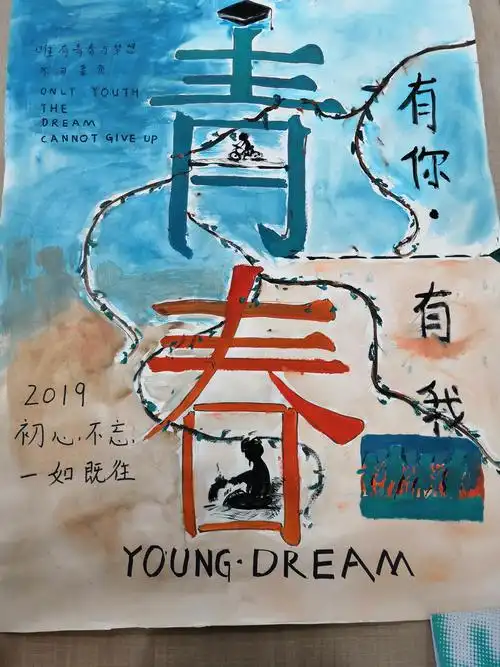 唯有青春与梦想
不可辜负
ONLY YOUTH
THE
DREAM
CANNOT GIVE UP
青春
有你·
有我
2019
初心不忘,
一如既往
YOUNG·DREAM